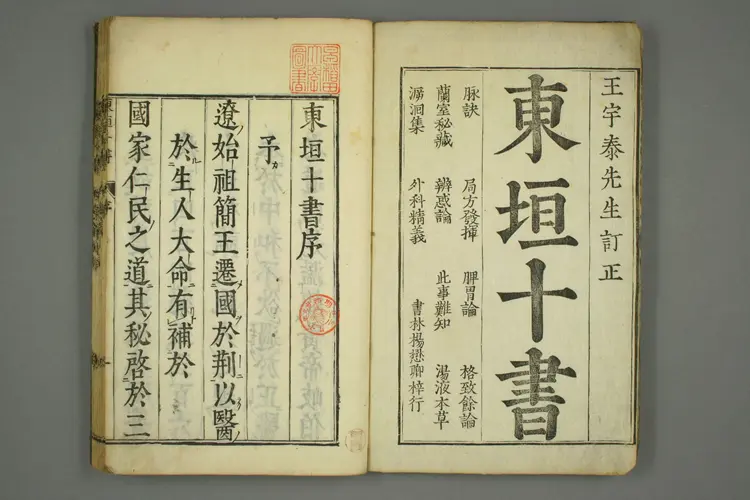 王宇泰先生訂正
東垣十書
脉訣 局方發揮 脾胃論 格致餘論
蘭室秘藏 辨惑論 此事難知 湯液本草
溯洄集 外科精義 書林楊懋卿梓行
早稻田
大學
圖書
東垣十書序
予
遼始祖簡王遷國於荆以醫
於生人大命有補於
國家仁民之道其秘啓於三